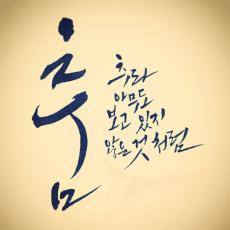 춤
추라
아무도
보고 있지
않은 것 처럼